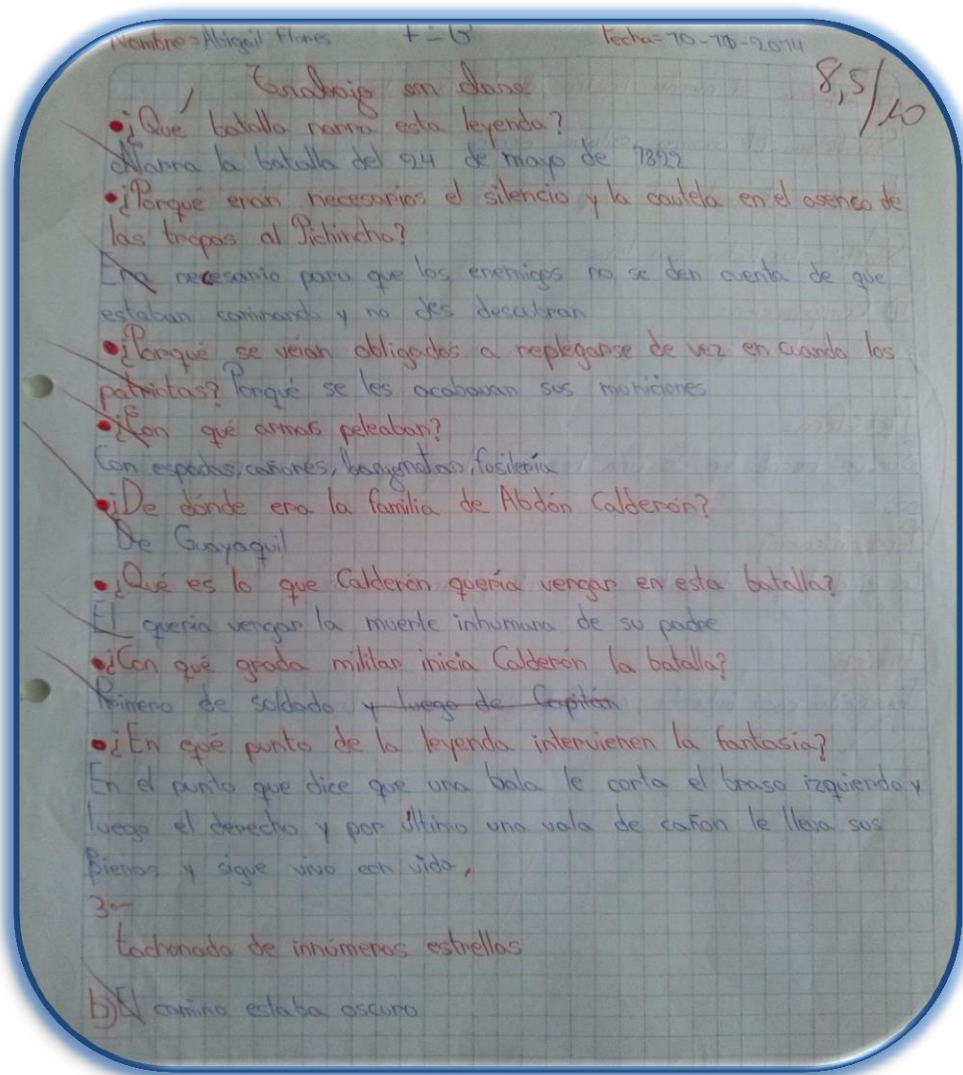 Nombre = Abigail Flores Fecha = 10-10-2014
Trabajo en clase 8,5/10
• ¿Qué batalla narra esta leyenda?
Narra la batalla del 24 de mayo de 1822
• ¿Porqué eran necesarios el silencio y la cautela en el asenso de
las tropas al Pichincha?
Era necesario para que los enemigos no se den cuenta de que
estaban caminando y no les descubran
• ¿Porqué se veian obligados a replegarse de vez en cuando los
patriotas? Porqué se les acabavan sus municiones
• ¿Con qué armas peleaban?
Con espadas, cañones, bayonetas, fosilería
• ¿De dónde era la familia de Abdón Calderón?
De Guayaquil
• ¿Qué es lo que Calderón quería vengar en esta batalla?
El queria vengar la muerte inhumana de su padre
• ¿Con qué grado militar inicia Calderón la batalla?
Primero de soldado y luego de Capitán
• ¿En qué punto de la leyenda intervienen la fantasía?
En el punto que dice que una bala le corta el braso izquierdo y
luego el derecho y por último una vala de cañon le lleva sus
Pienas y sigue vivo con vida,
3.-
tachonado de innúmeras estrellas
b) El camino estaba oscuro